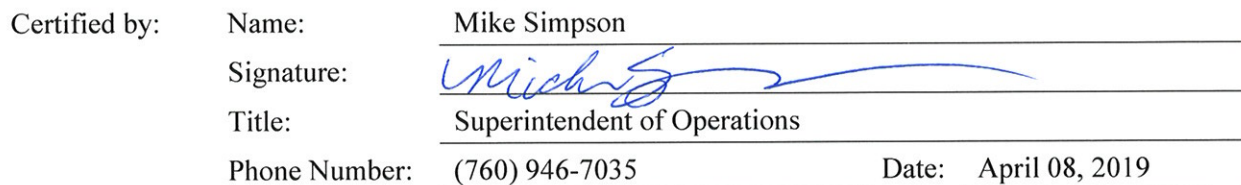 Certified by: Name: Mike Simpson
Signature:
Title: Superintendent of Operations
Phone Number: (760) 946-7035 Date: April 08, 2019